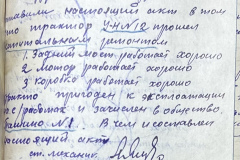 ставили настоящий акт в том
что трактор УН№12 прошел
капитальным ремонтом
1. Задний мост работает хорошо
2 мотор работает хорошо
3 коробка работает хорошо
пригоден к эксплоатации
работам и зачислен в общество
машино №1. В чем и составлен
настоящий акт.
ст. механик